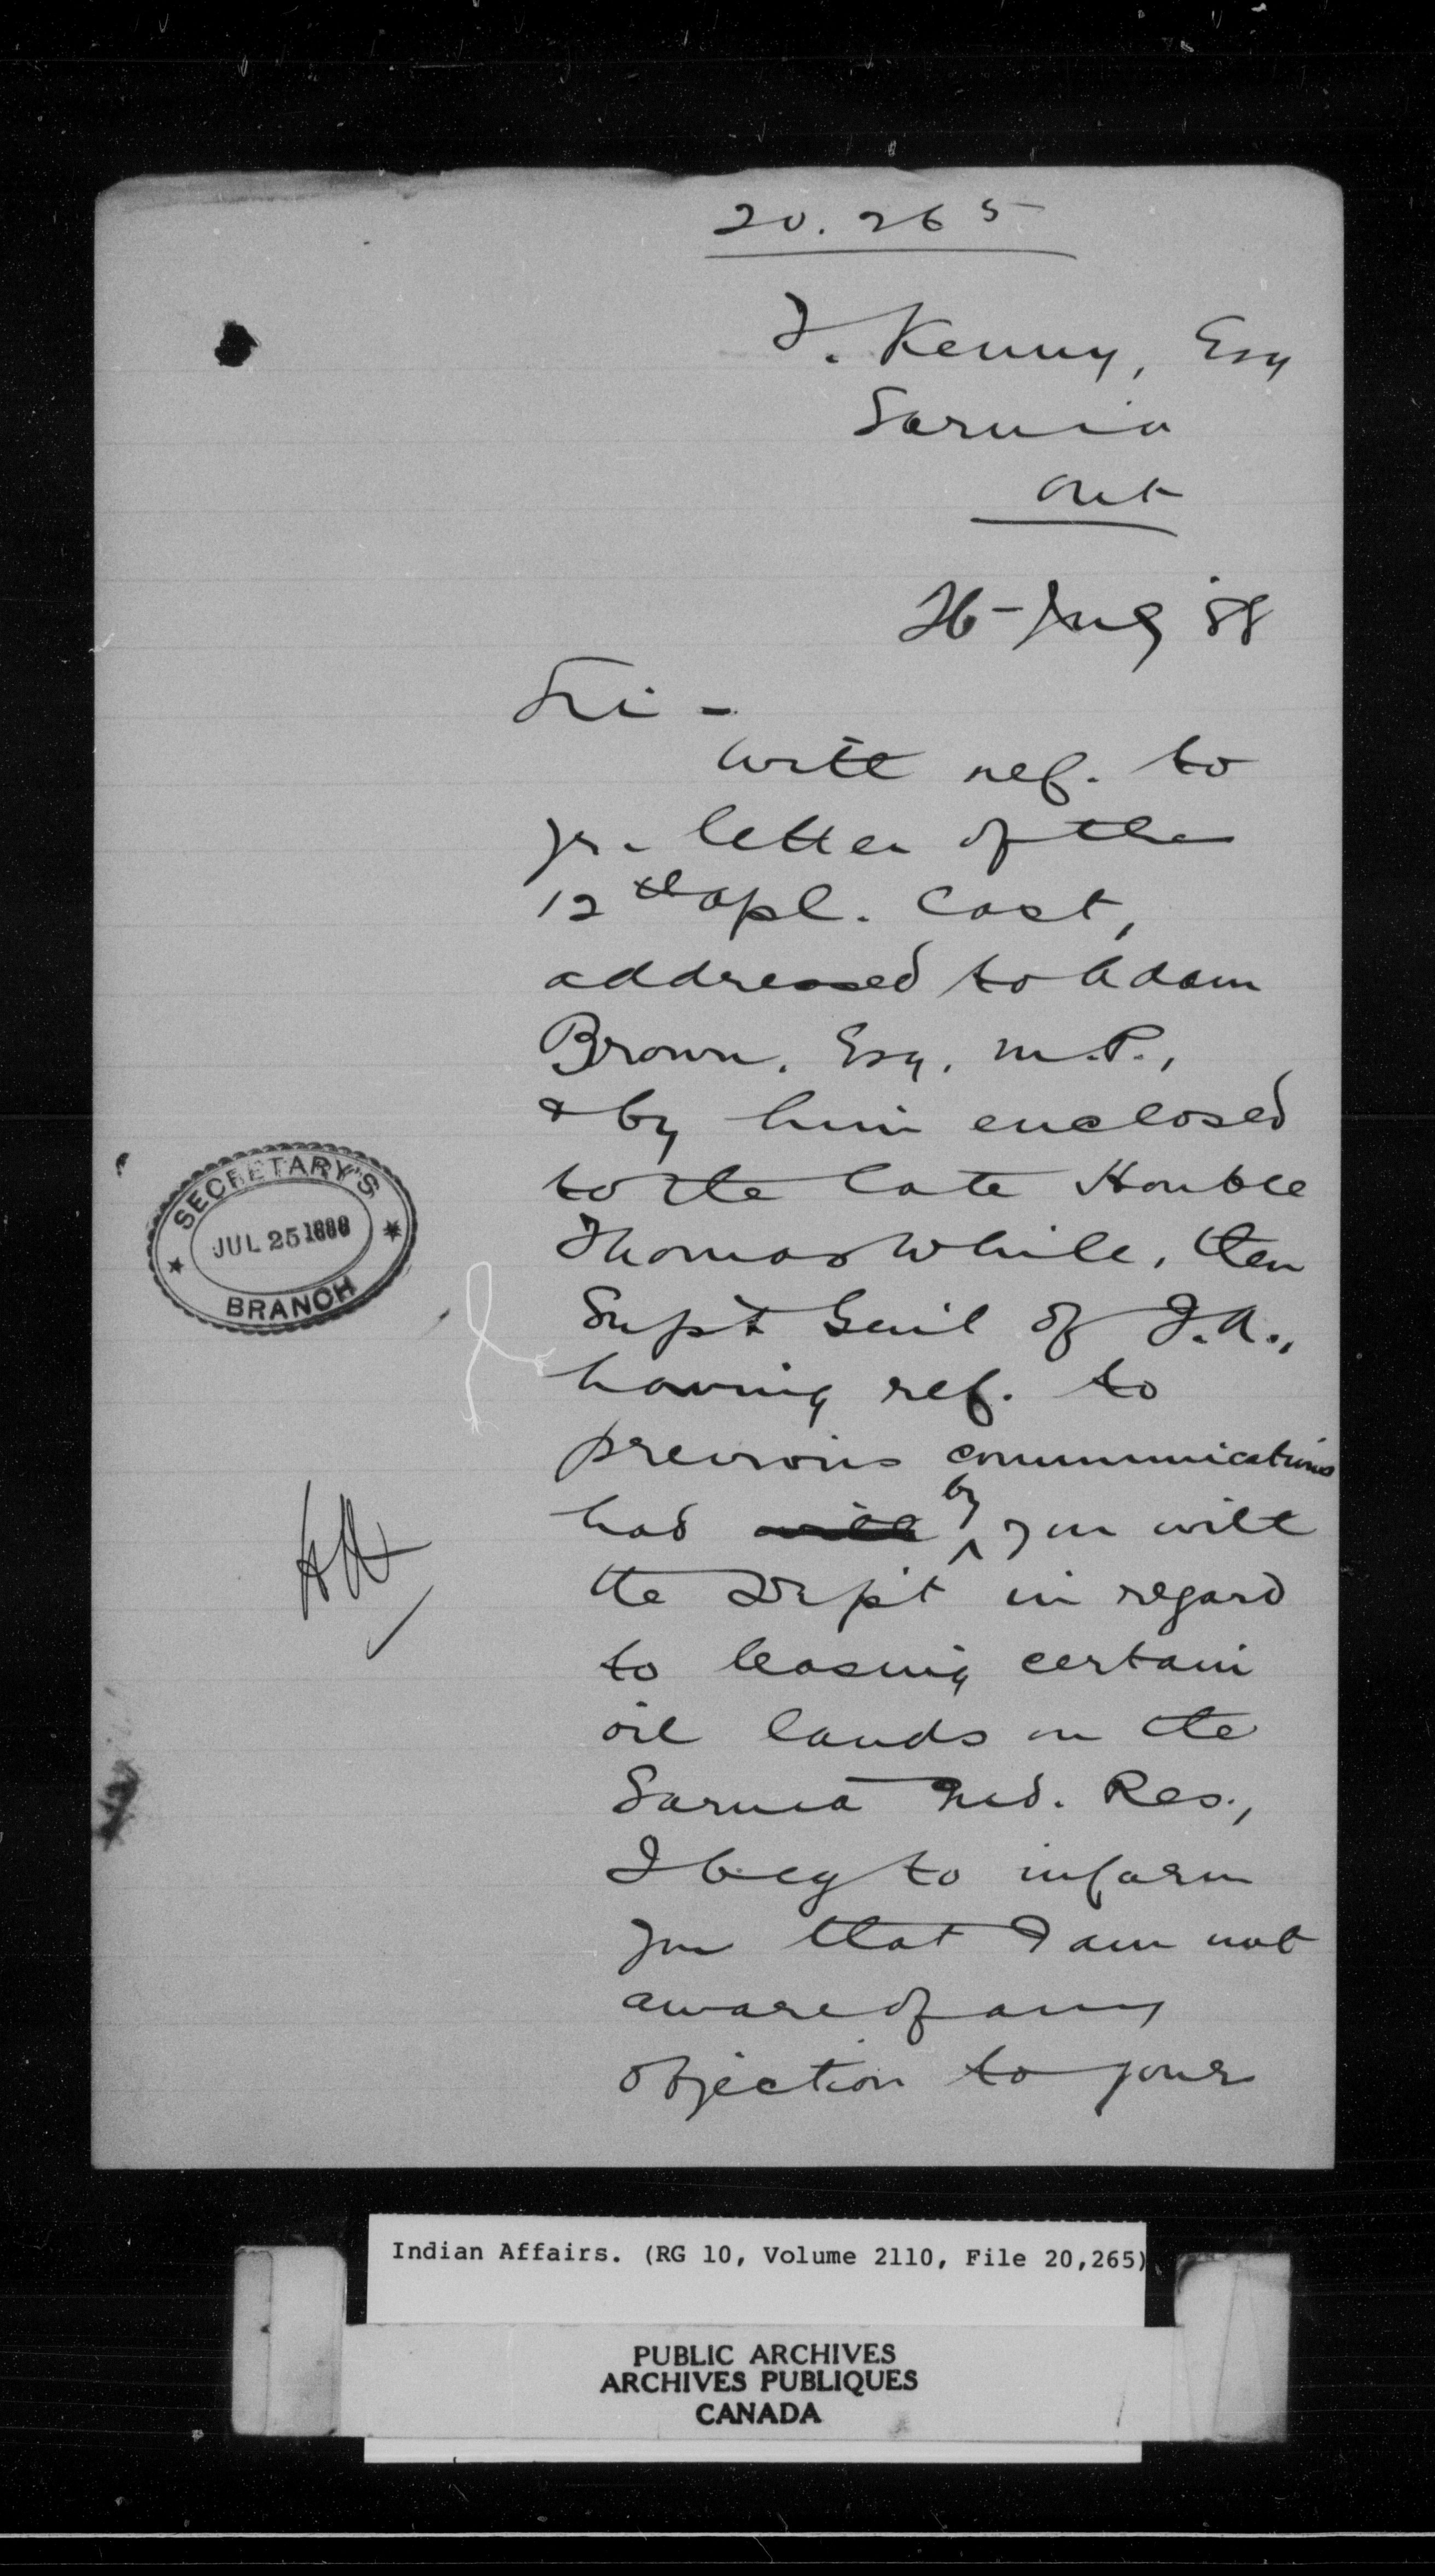 20.265
T. Kenny, Esq
Sarnia
Ont
26 - '88
Sir -
With ref. to
yr. letter of the
12th Apl. last,
addressed to Adam
Brown, Esq. M.P.,
& by him enclosed
to the late Honble
Thomas White, then
Supt Genl of I.A.,
having ref. to
previous communications
had with by you with
the Dep't in regard
to leasing certain
oil lands on the
Sarnia Ind. Res.,
I beg to inform
you that I am not
aware of any
objection to your
SECRETARY'S
JUL 25 1888
BRANCH
Indian Affairs. (RG 10, Volume 2110, File 20,265)
PUBLIC ARCHIVES
ARCHIVES PUBLIQUES
CANADA